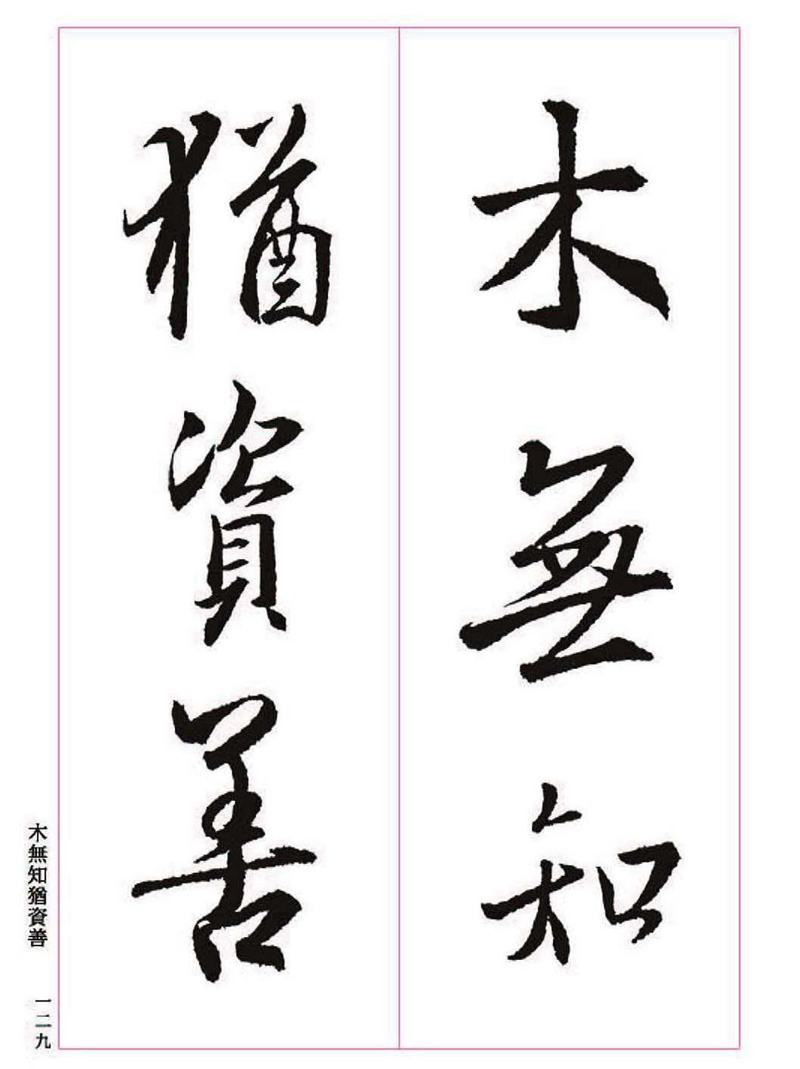 木無知
猶資善
木無知猶資善
一二九